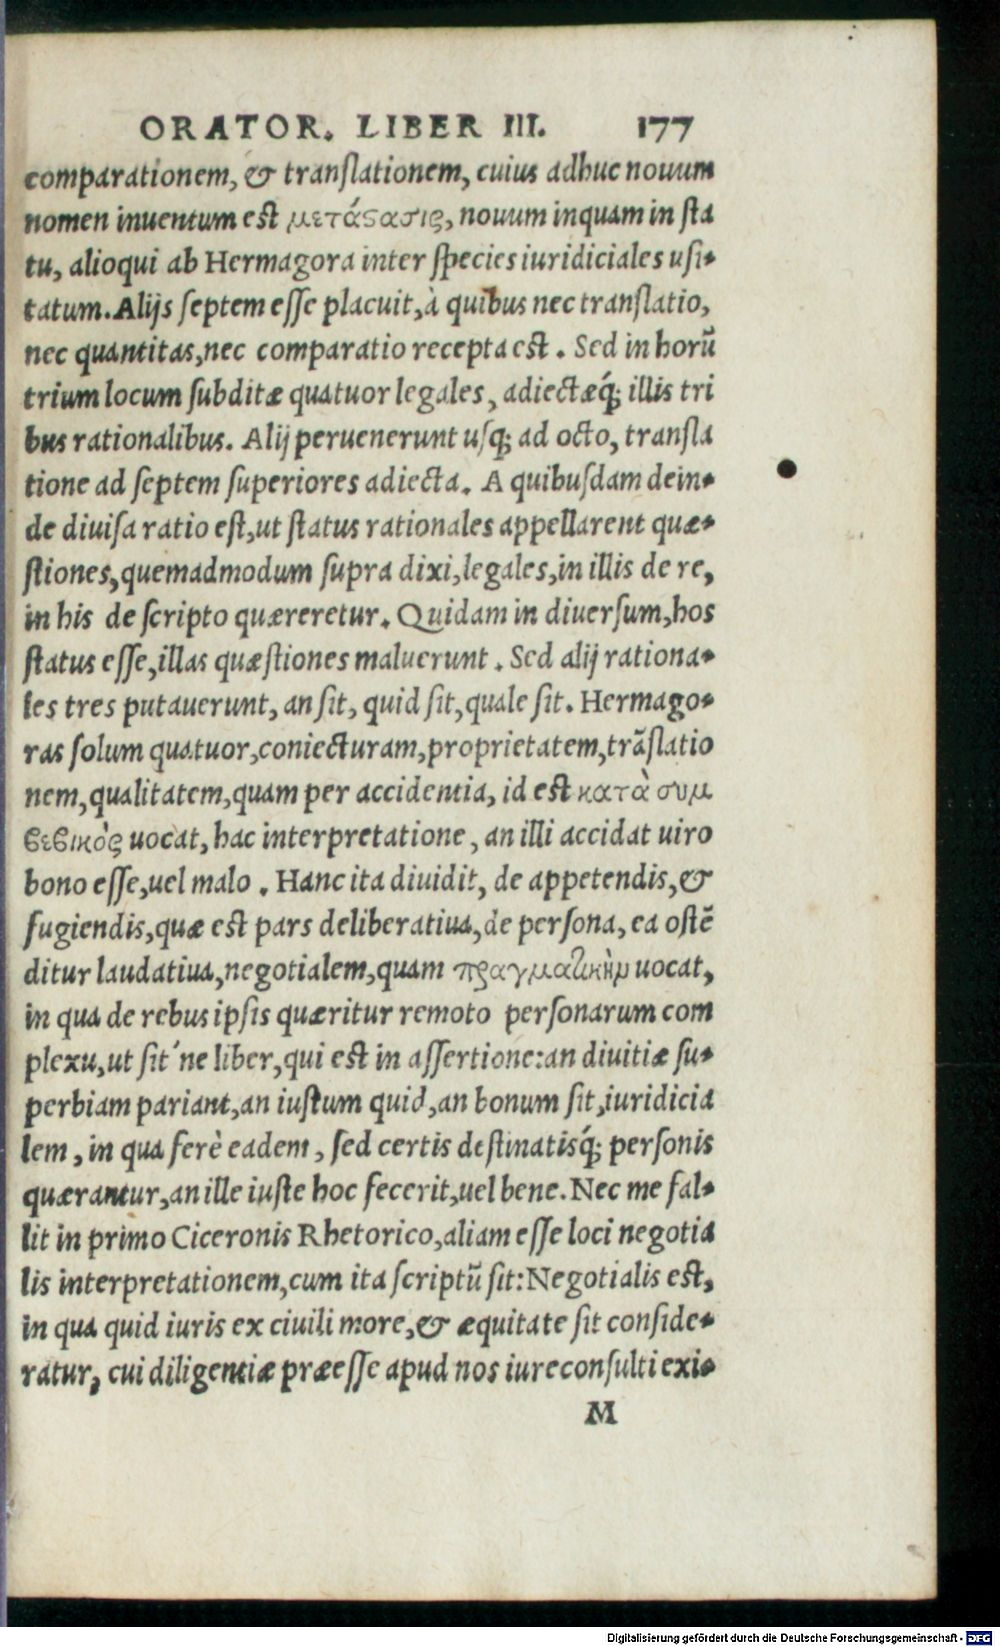 ORATOR. LIBER III. 177
comparationem, & translationem, cuius adhuc nouum
nomen inuentum est μετάϛασις, nouum inquam in sta
tu, alioqui ab Hermagora inter species iuridiciales usi-
tatum. Alijs septem esse placuit, à quibus nec translatio,
nec quantitas, nec comparatio recepta est. Sed in horū
trium locum subditæ quatuor legales, adiectæq́; illis tri
bus rationalibus. Alij peruenerunt usq; ad octo, transla
tione ad septem superiores adiecta. A quibusdam dein-
de diuisa ratio est, ut status rationales appellarent quæ-
stiones, quemadmodum supra dixi, legales, in illis de re,
in his de scripto quæreretur. Quidam in diuersum, hos
status esse, illas quæstiones maluerunt. Sed alij rationa-
les tres putauerunt, an sit, quid sit, quale sit. Hermago-
ras solum quatuor, coniecturam, proprietatem, trãslatio
nem, qualitatem, quam per accidentia, id est κατὰ συμ
βεβικὸς uocat, hac interpretatione, an illi accidat uiro
bono esse, uel malo. Hanc ita diuidit, de appetendis, &
fugiendis, quæ est pars deliberatiua, de persona, ea ostē
ditur laudatiua, negotialem, quam πραγματικὴν uocat,
in qua de rebus ipsis quæritur remoto personarum com
plexu, ut sit'ne liber, qui est in assertione: an diuitiæ su-
perbiam pariant, an iustum quid, an bonum sit, iuridicia
lem, in qua ferè eadem, sed certis destinatisq́; personis
quærantur, an ille iuste hoc fecerit, uel bene. Nec me fal-
lit in primo Ciceronis Rhetorico, aliam esse loci negotia
lis interpretationem, cum ita scriptū sit: Negotialis est,
in qua quid iuris ex ciuili more, & æquitate sit conside-
ratur, cui diligentiæ præesse apud nos iureconsulti exi-
M
Digitalisierung gefördert durch die Deutsche Forschungsgemeinschaft - DFG